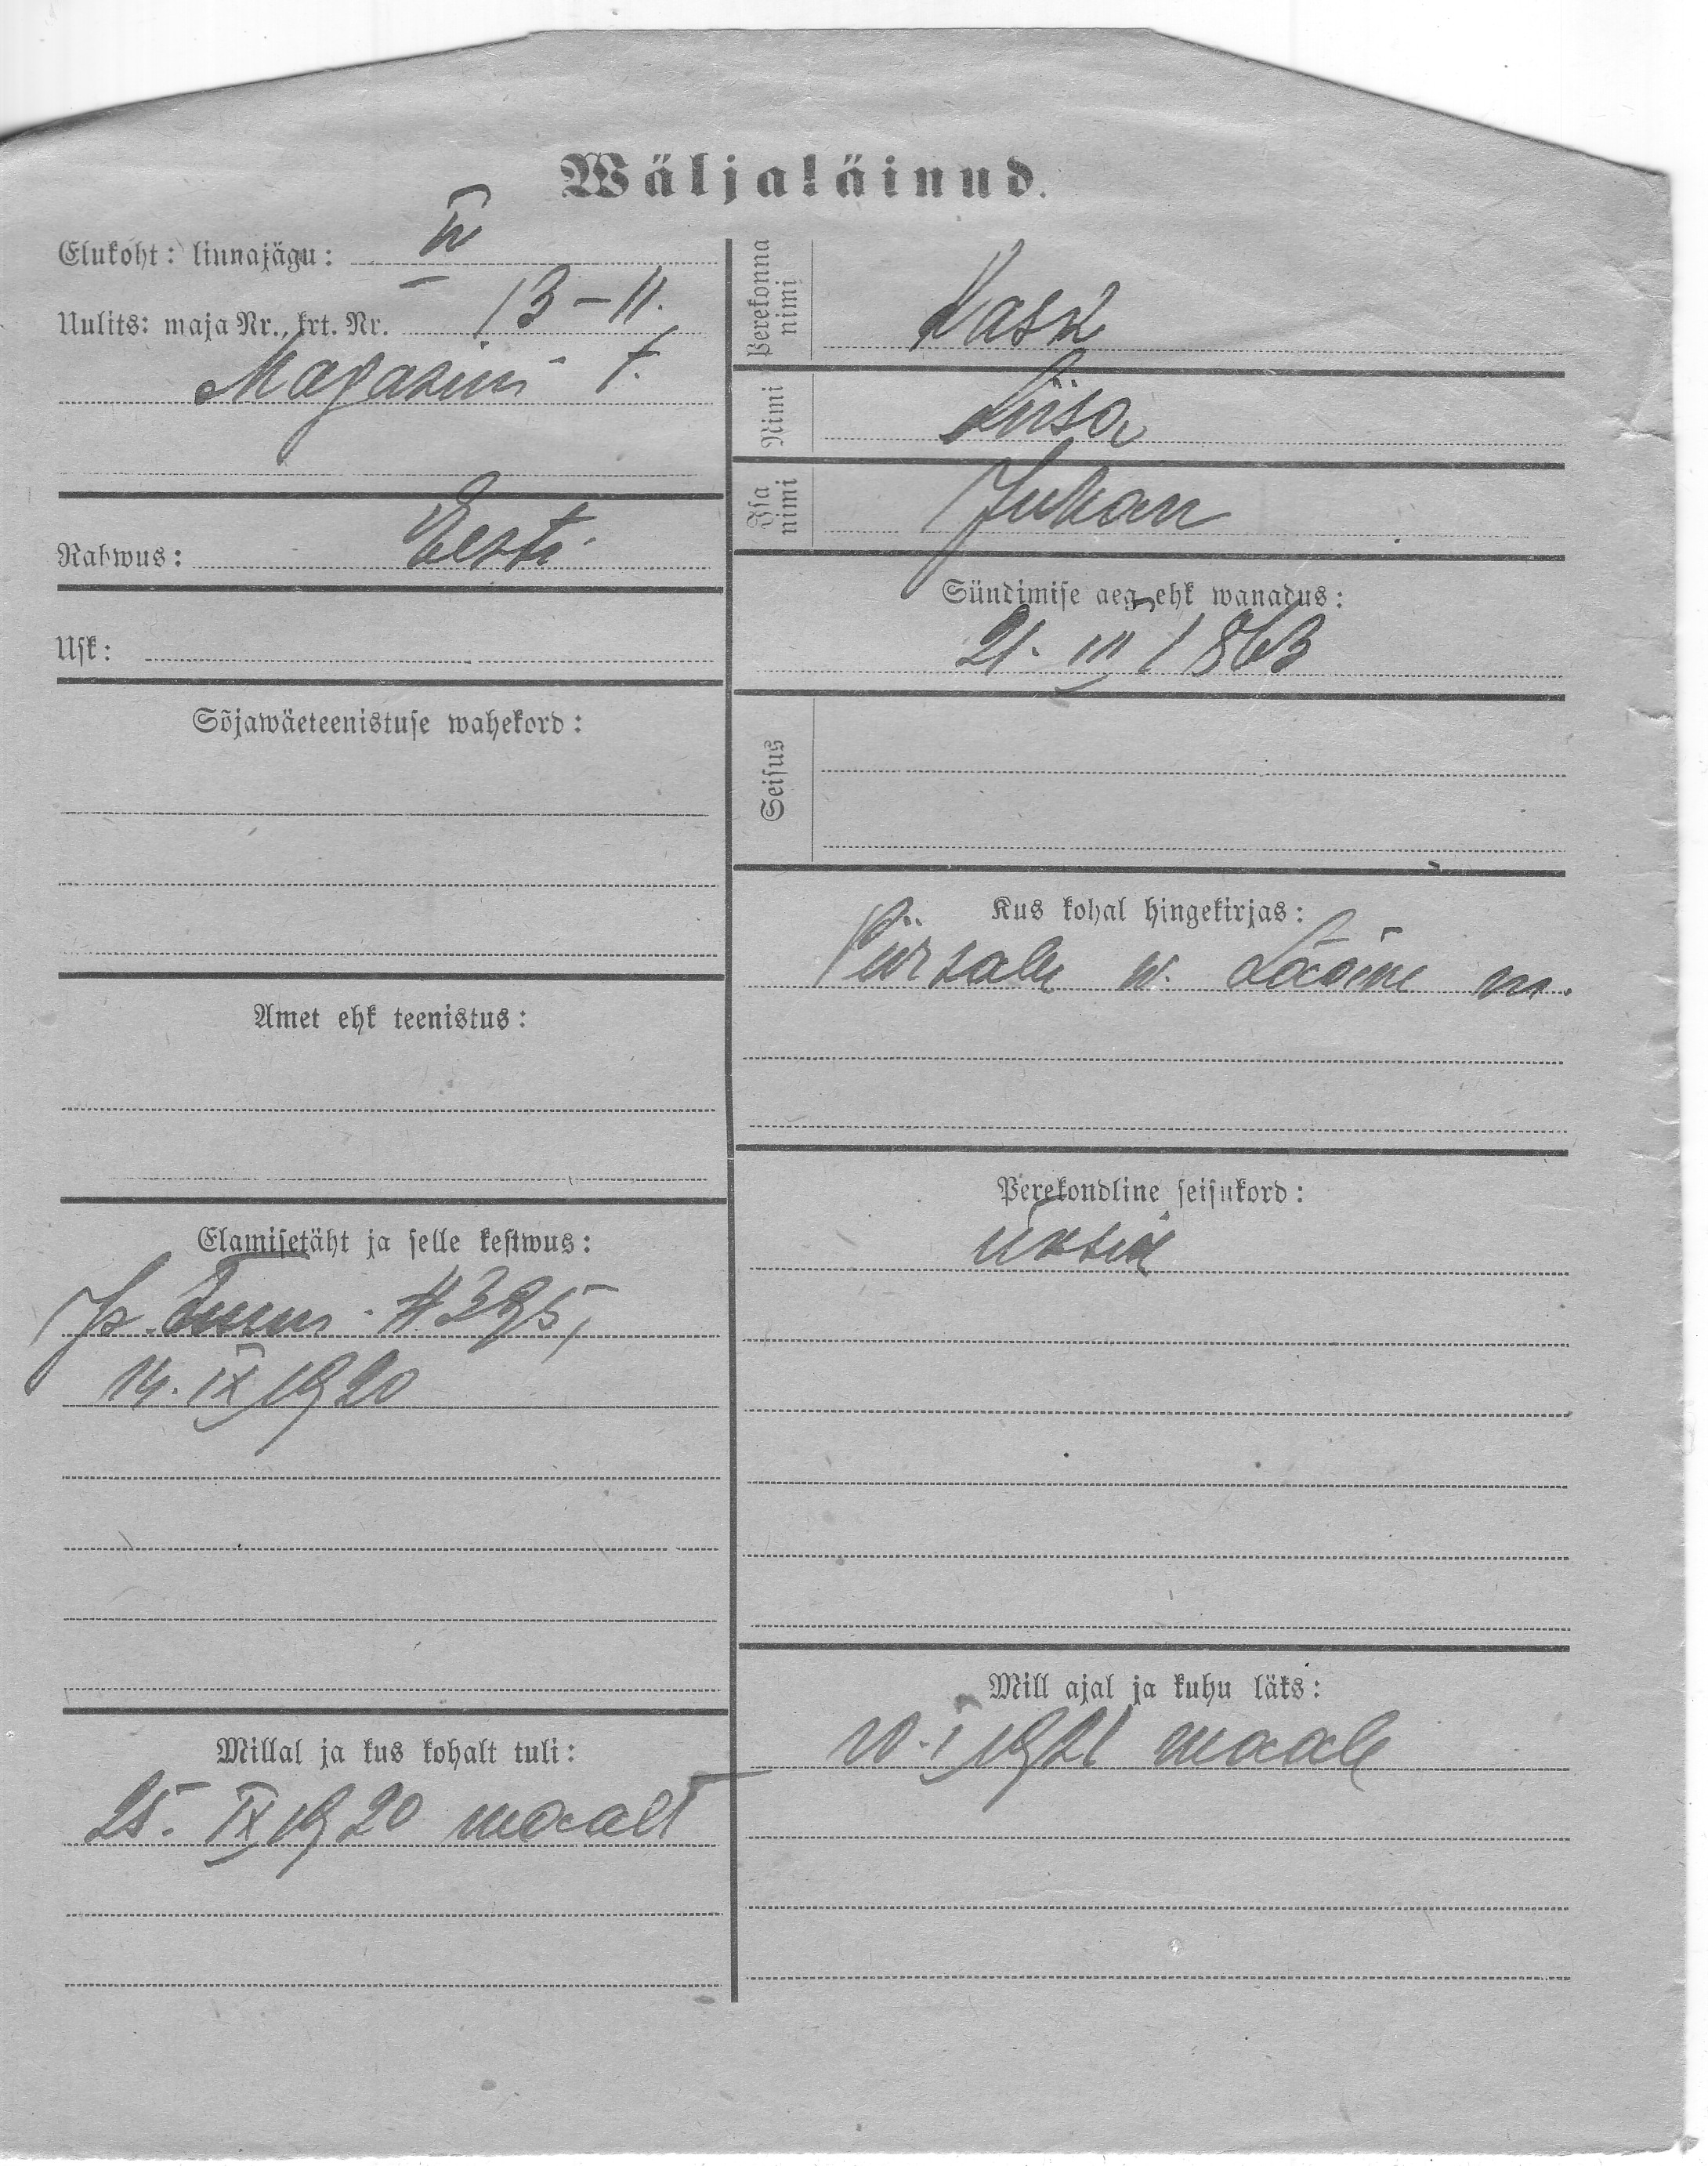 Wäljaläinud.
Elukoht: linnajägu: IV
Uulits: maja Nr., krt. Nr. 13-11.
Magasini t.
Rahwus: Eesti
Usk:
Sõjawäeteenistuse wahekord:
Amet ehk teenistus:
Elamisetäht ja selle kestwus:
#395,
14. IX 1920
Millal ja kus kohalt tuli:
25. IX 1920 maalt
Perekonna nimi Kask
Nimi Liisa
Isa nimi Juhan
Sündimise aeg ehk wanadus:
21. III 1863
Seisus
Kus kohal hingekirjas:
Piirsalu w. Lääne m.
Perekondline seisukord:
üksik
Mill ajal ja kuhu läks:
I 1921 maale